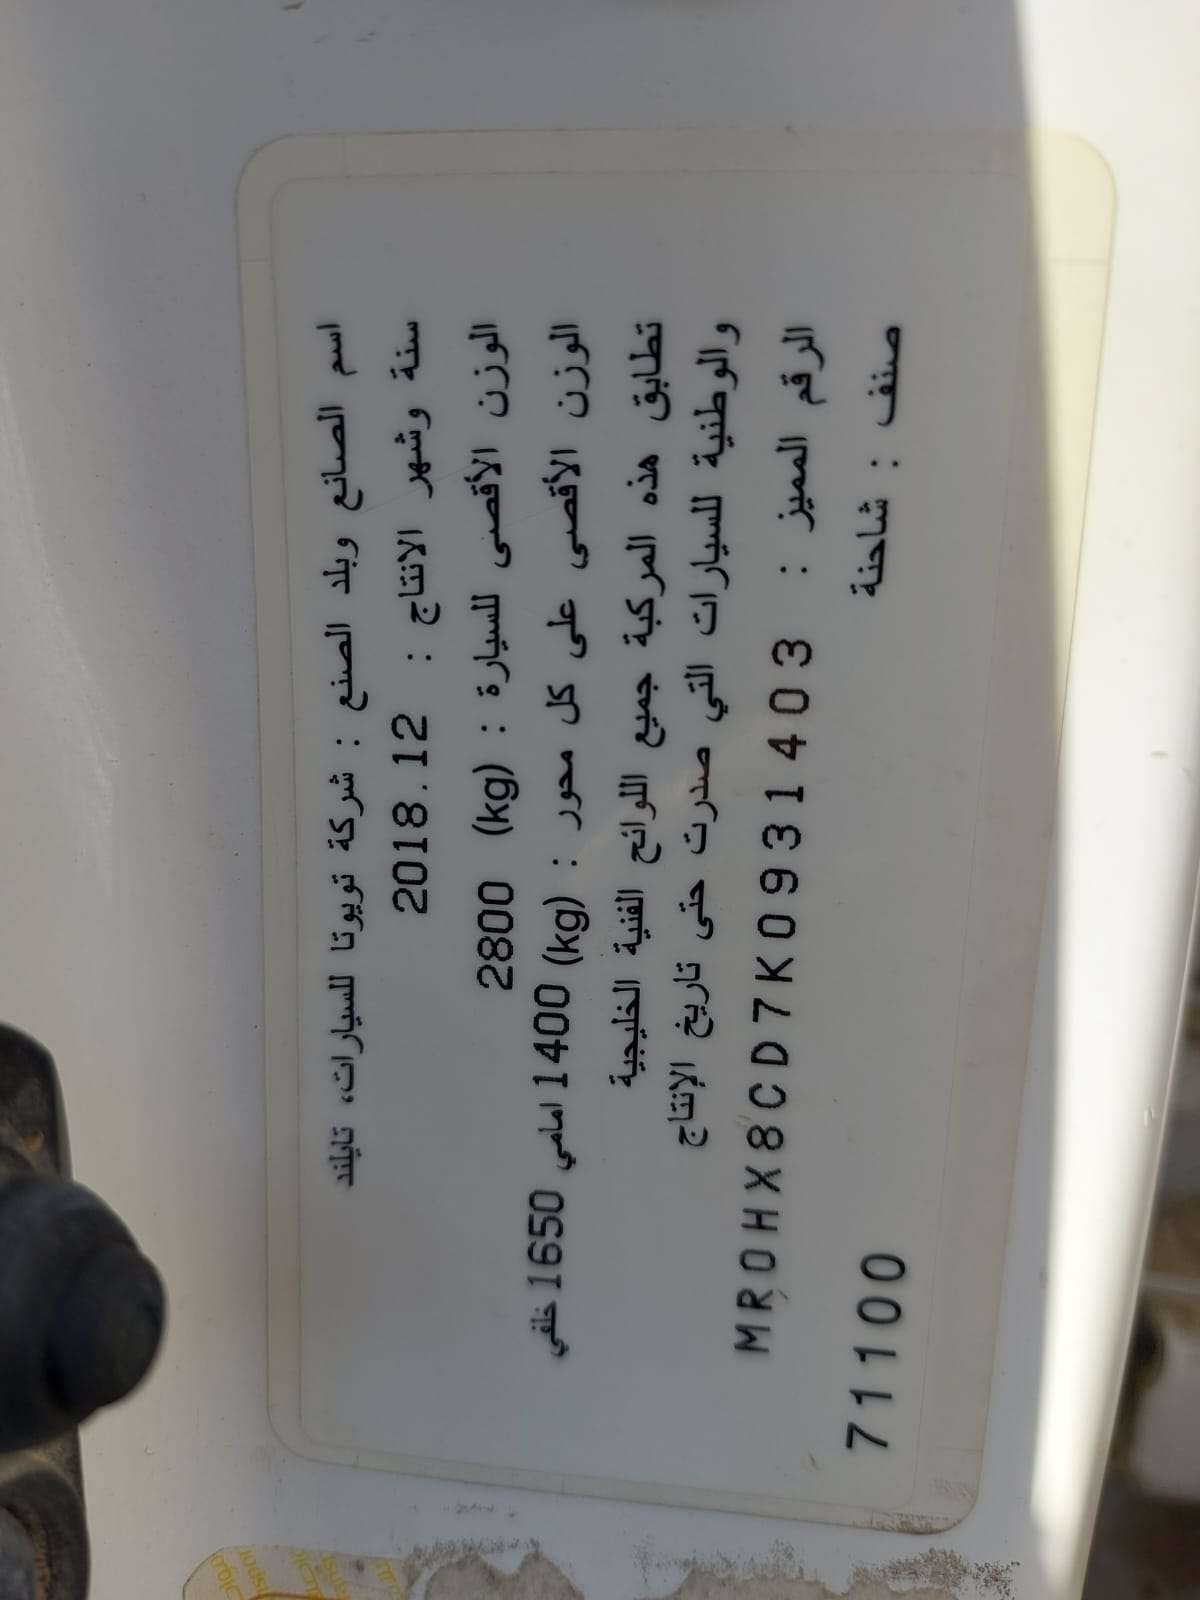 اسم الصانع وبلد الصنع : شركة تويوتا للسيارات، تايلند
سنة وشهر الانتاج : 2018.12
الوزن الأقصى للسيارة : (kg) 2800
الوزن الأقصى على كل محور : (kg) 1400 امامي 1650 خلفي
تطابق هذه المركبة جميع اللوائح الفنية الخليجية
والوطنية للسيارات التي صدرت حتى تاريخ الإنتاج
الرقم المميز : MR0HX8CD7K0931403
صنف : شاحنة 71100